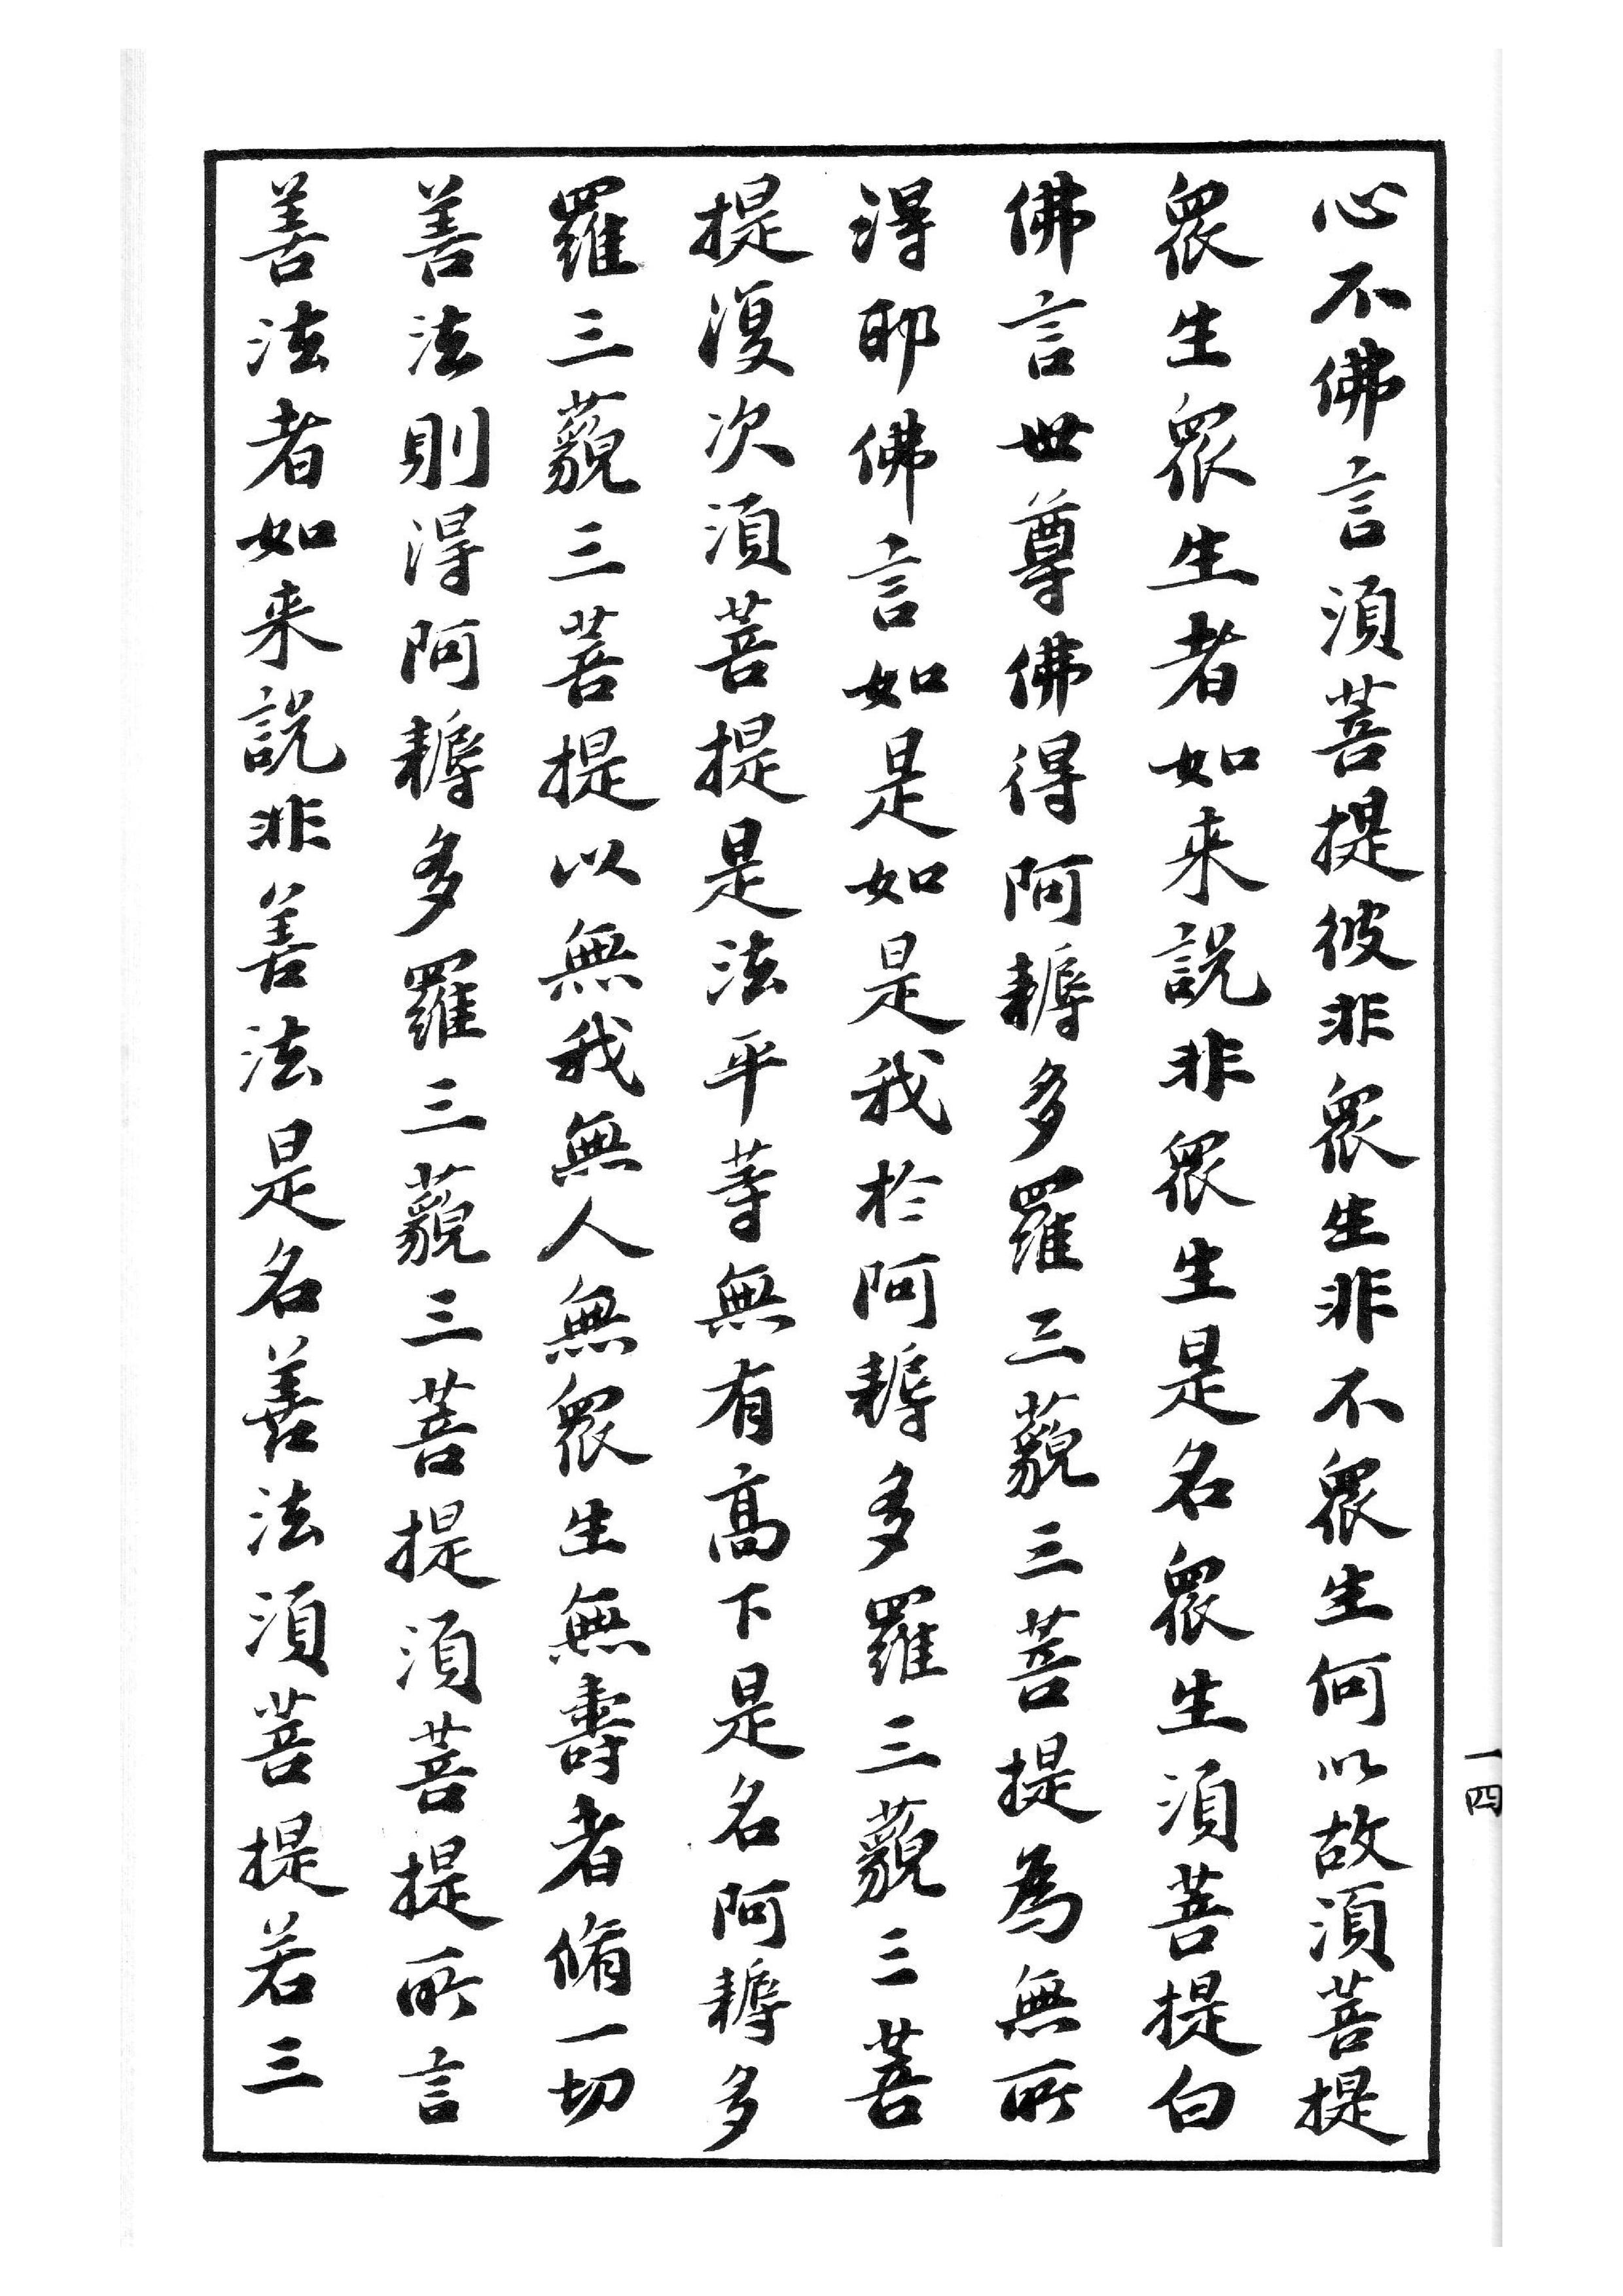 心不佛言須菩提彼非衆生非不衆生何以故須菩提
衆生衆生者如来說非衆生是名衆生須菩提白
佛言世尊佛得阿耨多羅三藐三菩提為無所
得耶佛言如是如是我於阿耨多羅三藐三菩
提復次須菩提是法平等無有高下是名阿耨多
羅三藐三菩提以無我無人無衆生無壽者脩一切
善法則得阿耨多羅三藐三菩提須菩提所言
善法者如来說非善法是名善法須菩提若三
一四